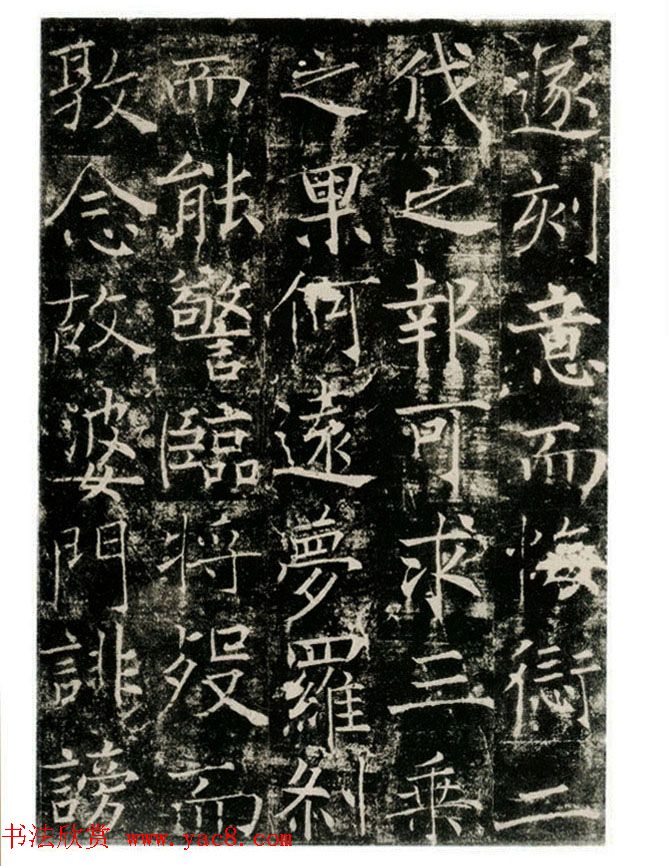 遂刻意而悔衍二
伐之報可求三乗
之果何遠夢羅刹
而能警臨将歿而
敦念故婆門誹謗
书法欣赏 www.yac8.com